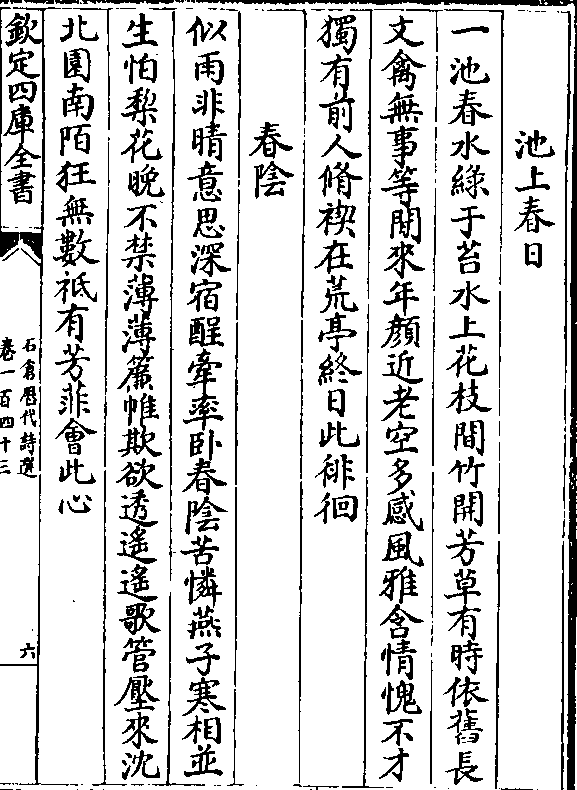 池上春日
一池春水綠于苔水上花枝間竹開芳草有時依舊長
文禽無事等閒來年顏近老空多感風雅含情愧不才
獨有前人脩禊在荒亭終日此徘徊
春陰
似雨非晴意思深宿酲牽率卧春陰苦憐燕子寒相並
生怕梨花晚不禁薄薄簾帷欺欲透遙遙歌管壓來沈
北園南陌狂無數祗有芳菲會此心
欽定四庫全書
石倉歷代詩選
卷一百四十三
六